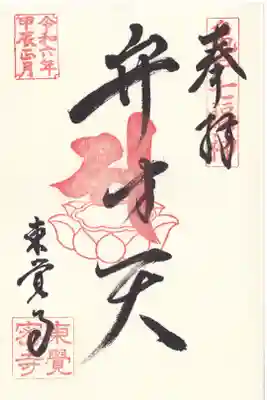 奉拝
弁才天
東覚寺
令和六年
甲辰正月
東覺
密寺